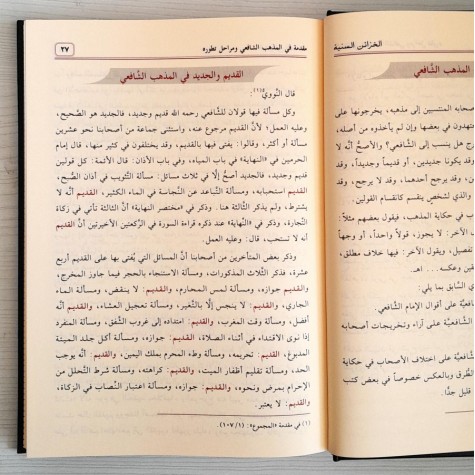 الخزائن السنية
المذهب الشافعي
صحابه المنتسبين إلى مذهبه، يخرجونها على
تهدون في بعضها وإن لم يأخذوه من أصله،
رج هل ينسب إلى الشافعي؟ والأصح أنه لا
وقد يكونا جديدين، أو قديماً وجديداً، وقد
ن، وقد يرجح أحدهما، وقد لا يرجح، وقد
والذي لشخص يقسم كانقسام القولين.
ب في حكاية المذهب، فيقول بعضهم مثلاً:
الآخر: لا يجوز، قولاً واحداً، أو وجهاً
تفصيل، ويقول الآخر: فيها خلاف مطلق،
ين وعكسه... اهـ.
ي السابق بما يلي:
ة على أقوال الإمام الشافعي.
لشافعية على آراء وتخريجات أصحابه
شافعية على اختلاف الأصحاب في حكاية
الطرق وبالعكس خصوصاً في بعض كتب
قليل جدًّا.
مقدمة في المذهب الشافعي ومراحل تطوره
٢٧
القديم والجديد في المذهب الشافعي
قال النَّووي(١):
وكل مسألة فيها قولان للشافعي رحمه الله قديم وجديد، فالجديد هو الصَّحيح،
وعليه العمل؛ لأنَّ القديم مرجوع عنه، واستثنى جماعة من أصحابنا نحو عشرين
مسألة أو أكثر، وقالوا: يفتى فيها بالقديم، وقد يختلفون في كثير منها، قال إمام
الحرمين في «النهاية» في باب المياه، وفي باب الأذان: قال الأئمة: كل قولين
قديم وجديد، فالجديد أصحُّ إلَّا في ثلاث مسائل: مسألة التَّثويب في أذان الصُّبح،
القديم استحبابه، ومسألة التَّباعد عن النَّجاسة في الماء الكثير، القديم أنَّه لا
يشترط، ولم يذكر الثَّالثة هنا. وذكر في «مختصر النهاية» أنَّ الثالثة تأتي في زكاة
التّجارة، وذكر في «النِّهاية» عند ذكره قراءة السورة في الرَّكعتين الأخيرتين أنَّ القديم
أنه لا تستحب، قال: وعليه العمل.
وذكر بعض المتأخرين من أصحابنا أنَّ المسائل التي يُفتى بها على القديم أربع
عشرة، فذكر الثَّلاث المذكورات، ومسألة الاستنجاء بالحجر فيما جاوز المخرج،
والقديم جوازه، ومسألة لمس المحارم، والقديم: لا ينقض، ومسألة الماء
الجاري، والقديم: لا ينجس إلَّا بالتَّغير، ومسألة تعجيل العشاء، والقديم أنَّه
أفضل، ومسألة وقت المغرب، والقديم: امتداده إلى غروب الشَّفق، ومسألة المنفرد
إذا نوى الاقتداء في أثناء الصلاة، القديم: جوازه، ومسألة أكل جلد الميتة
المدبوغ، القديم: تحريمه، ومسألة وطء المحرم بملك اليمين، والقديم: أنَّه يوجب
الحد، ومسألة تقليم أظفار الميت، والقديم: كراهته، ومسألة شرط التَّحلل من
الإحرام بمرض ونحوه، والقديم: جوازه، ومسألة اعتبار النِّصاب في الزكاة،
والقديم: لا يعتبر.
(١) في مقدمة «المجموع»: (١/١٠٧).